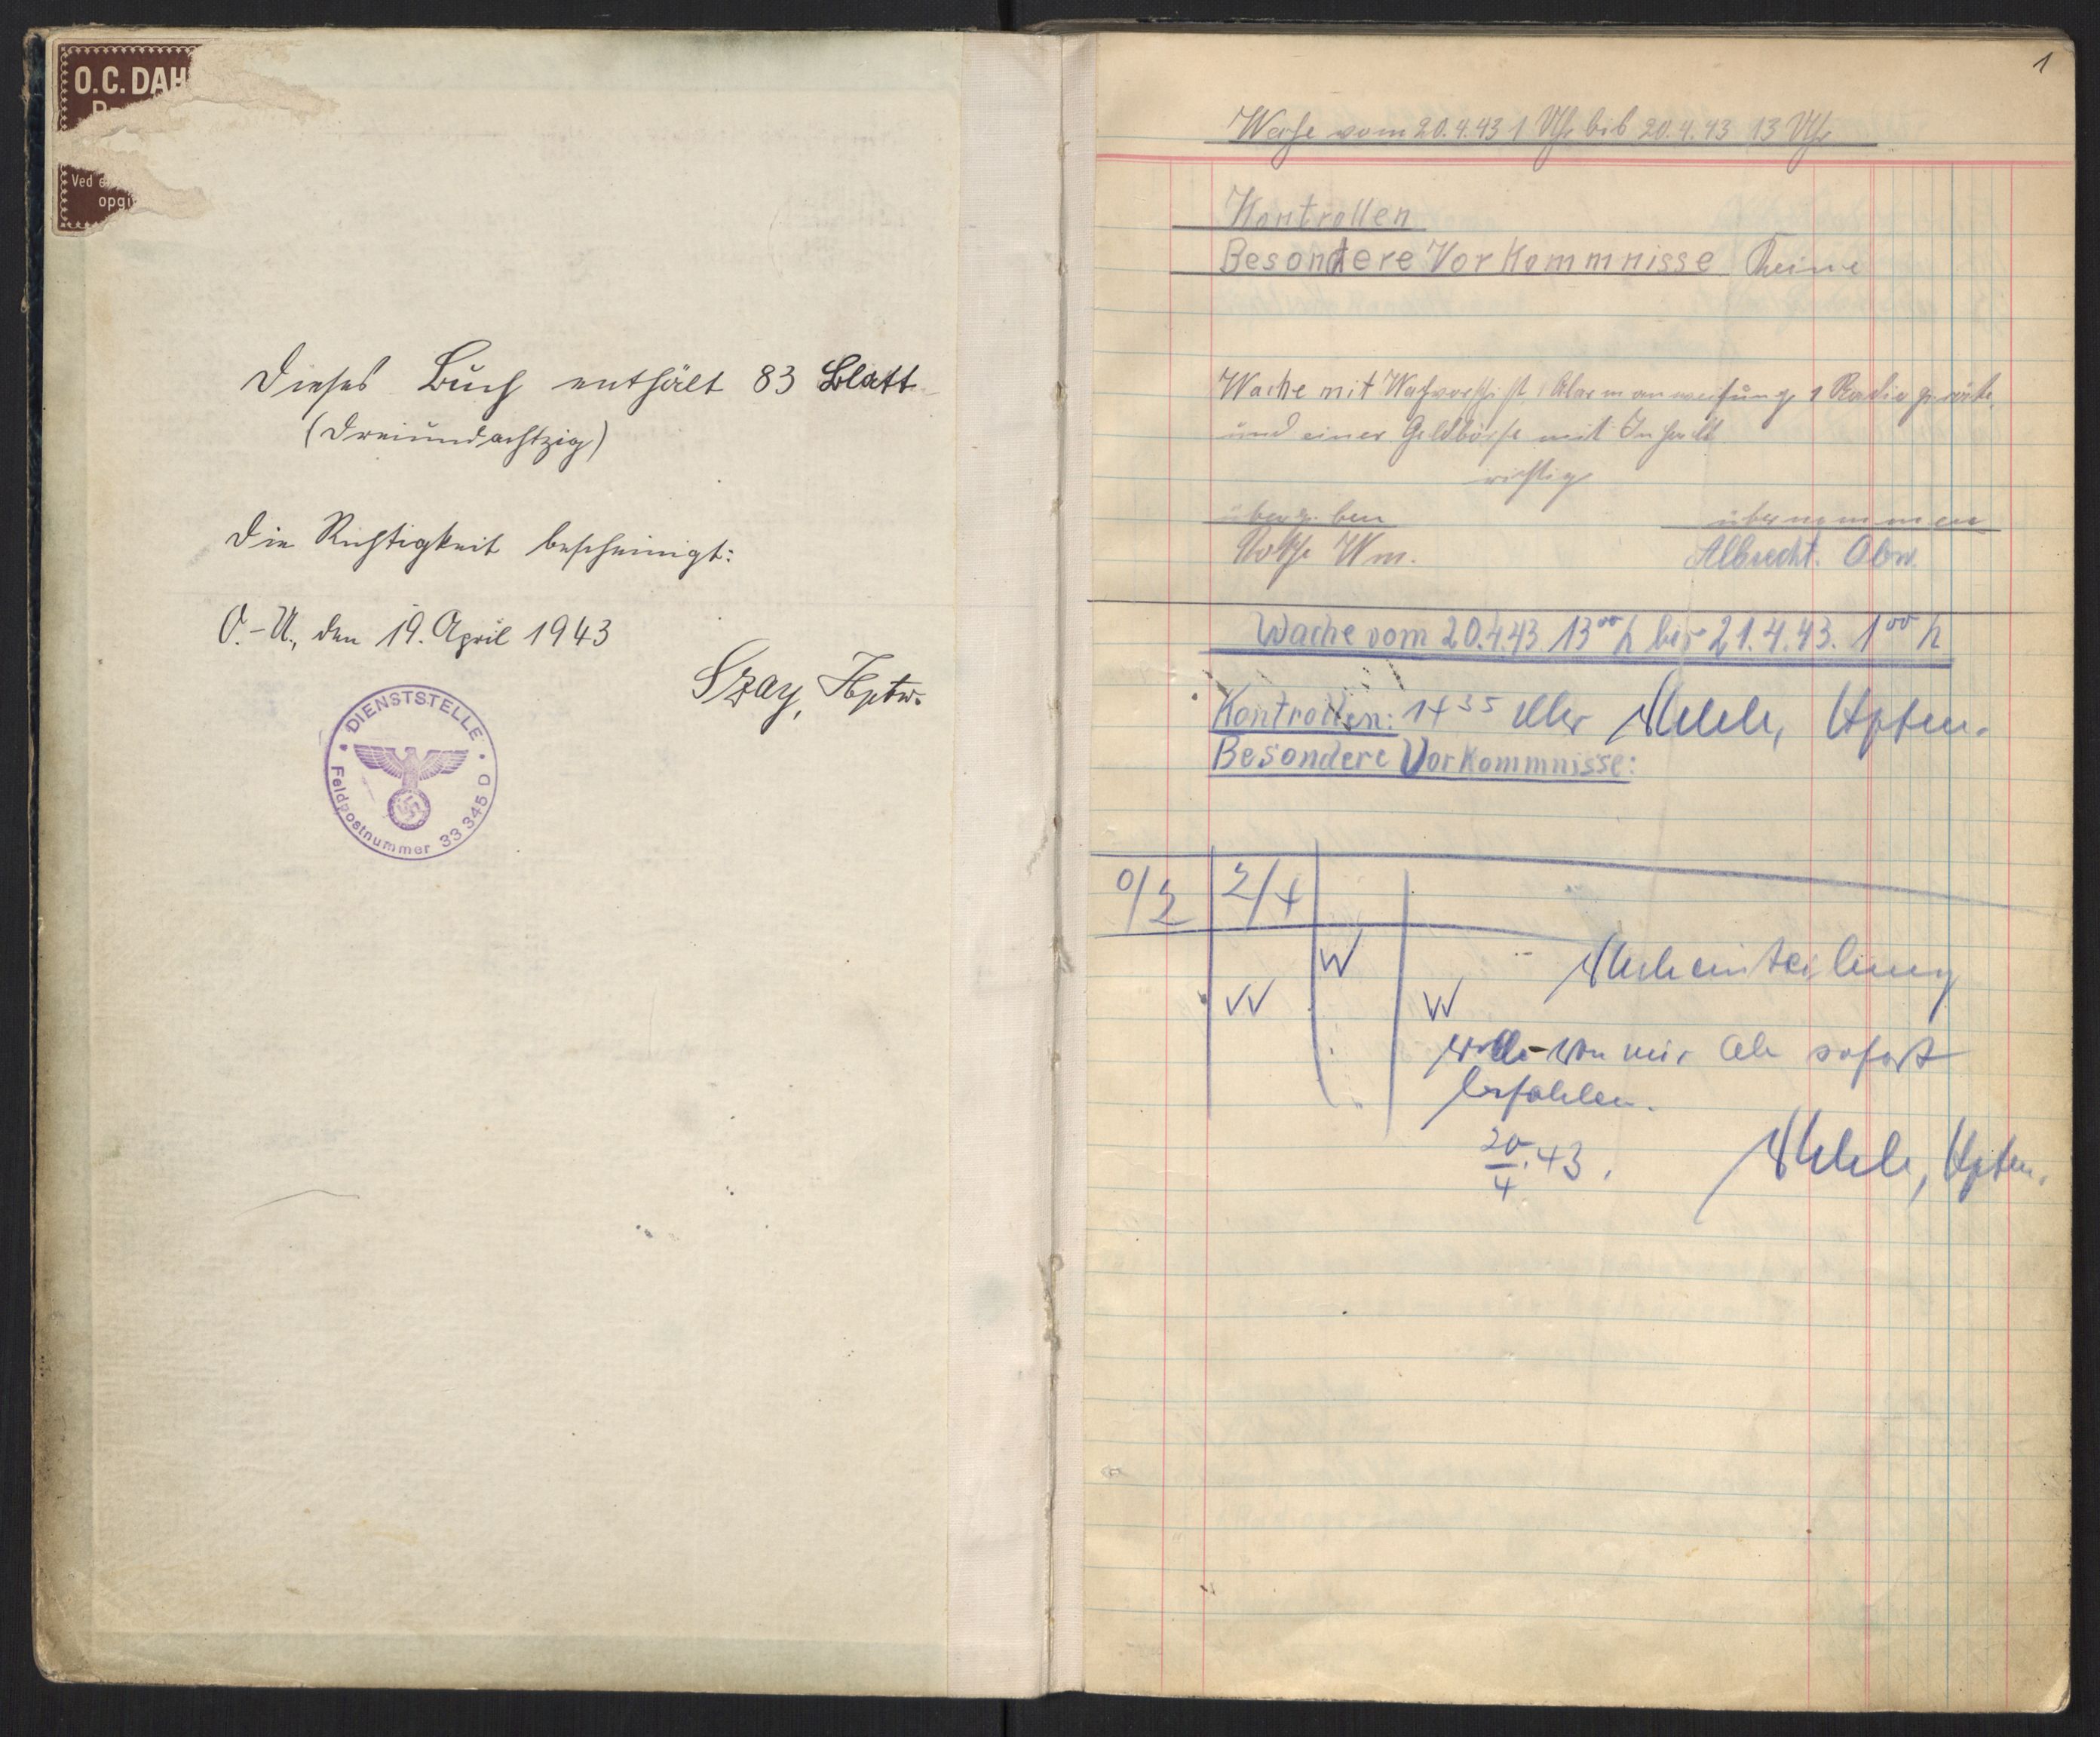 O.C. DAH
Ved e
opgi
Dieses Buch enthält 83 Blatt
(Dreiundachtzig)
Die Richtigkeit bescheinigt:
O.-U., den 19. April 1943
Szay, Hptw.
DIENSTSTELLE
Feldpostnummer 33 345 D
1
Wache vom 20.4.43 1 Uhr bis 20.4.43 13 Uhr
Kontrollen
Besondere Vorkommnisse Keine
Wache mit Wachvorschrift, Alarmanweisung, 1 Radiogeräte,
und einer Geldbörse mit Inhalt
richtig
übergeben übernommen
Wm. Albrecht. Obw.
Wache vom 20.4.43. 13⁰⁰ h bis 21.4.43. 1⁰⁰ h
Kontrollen: 14³⁵ Uhr Hptm.
Besondere Vorkommnisse:
0/2 2/4
W
W W
von mir ab sofort
befohlen.
20/4.43. Hptm.